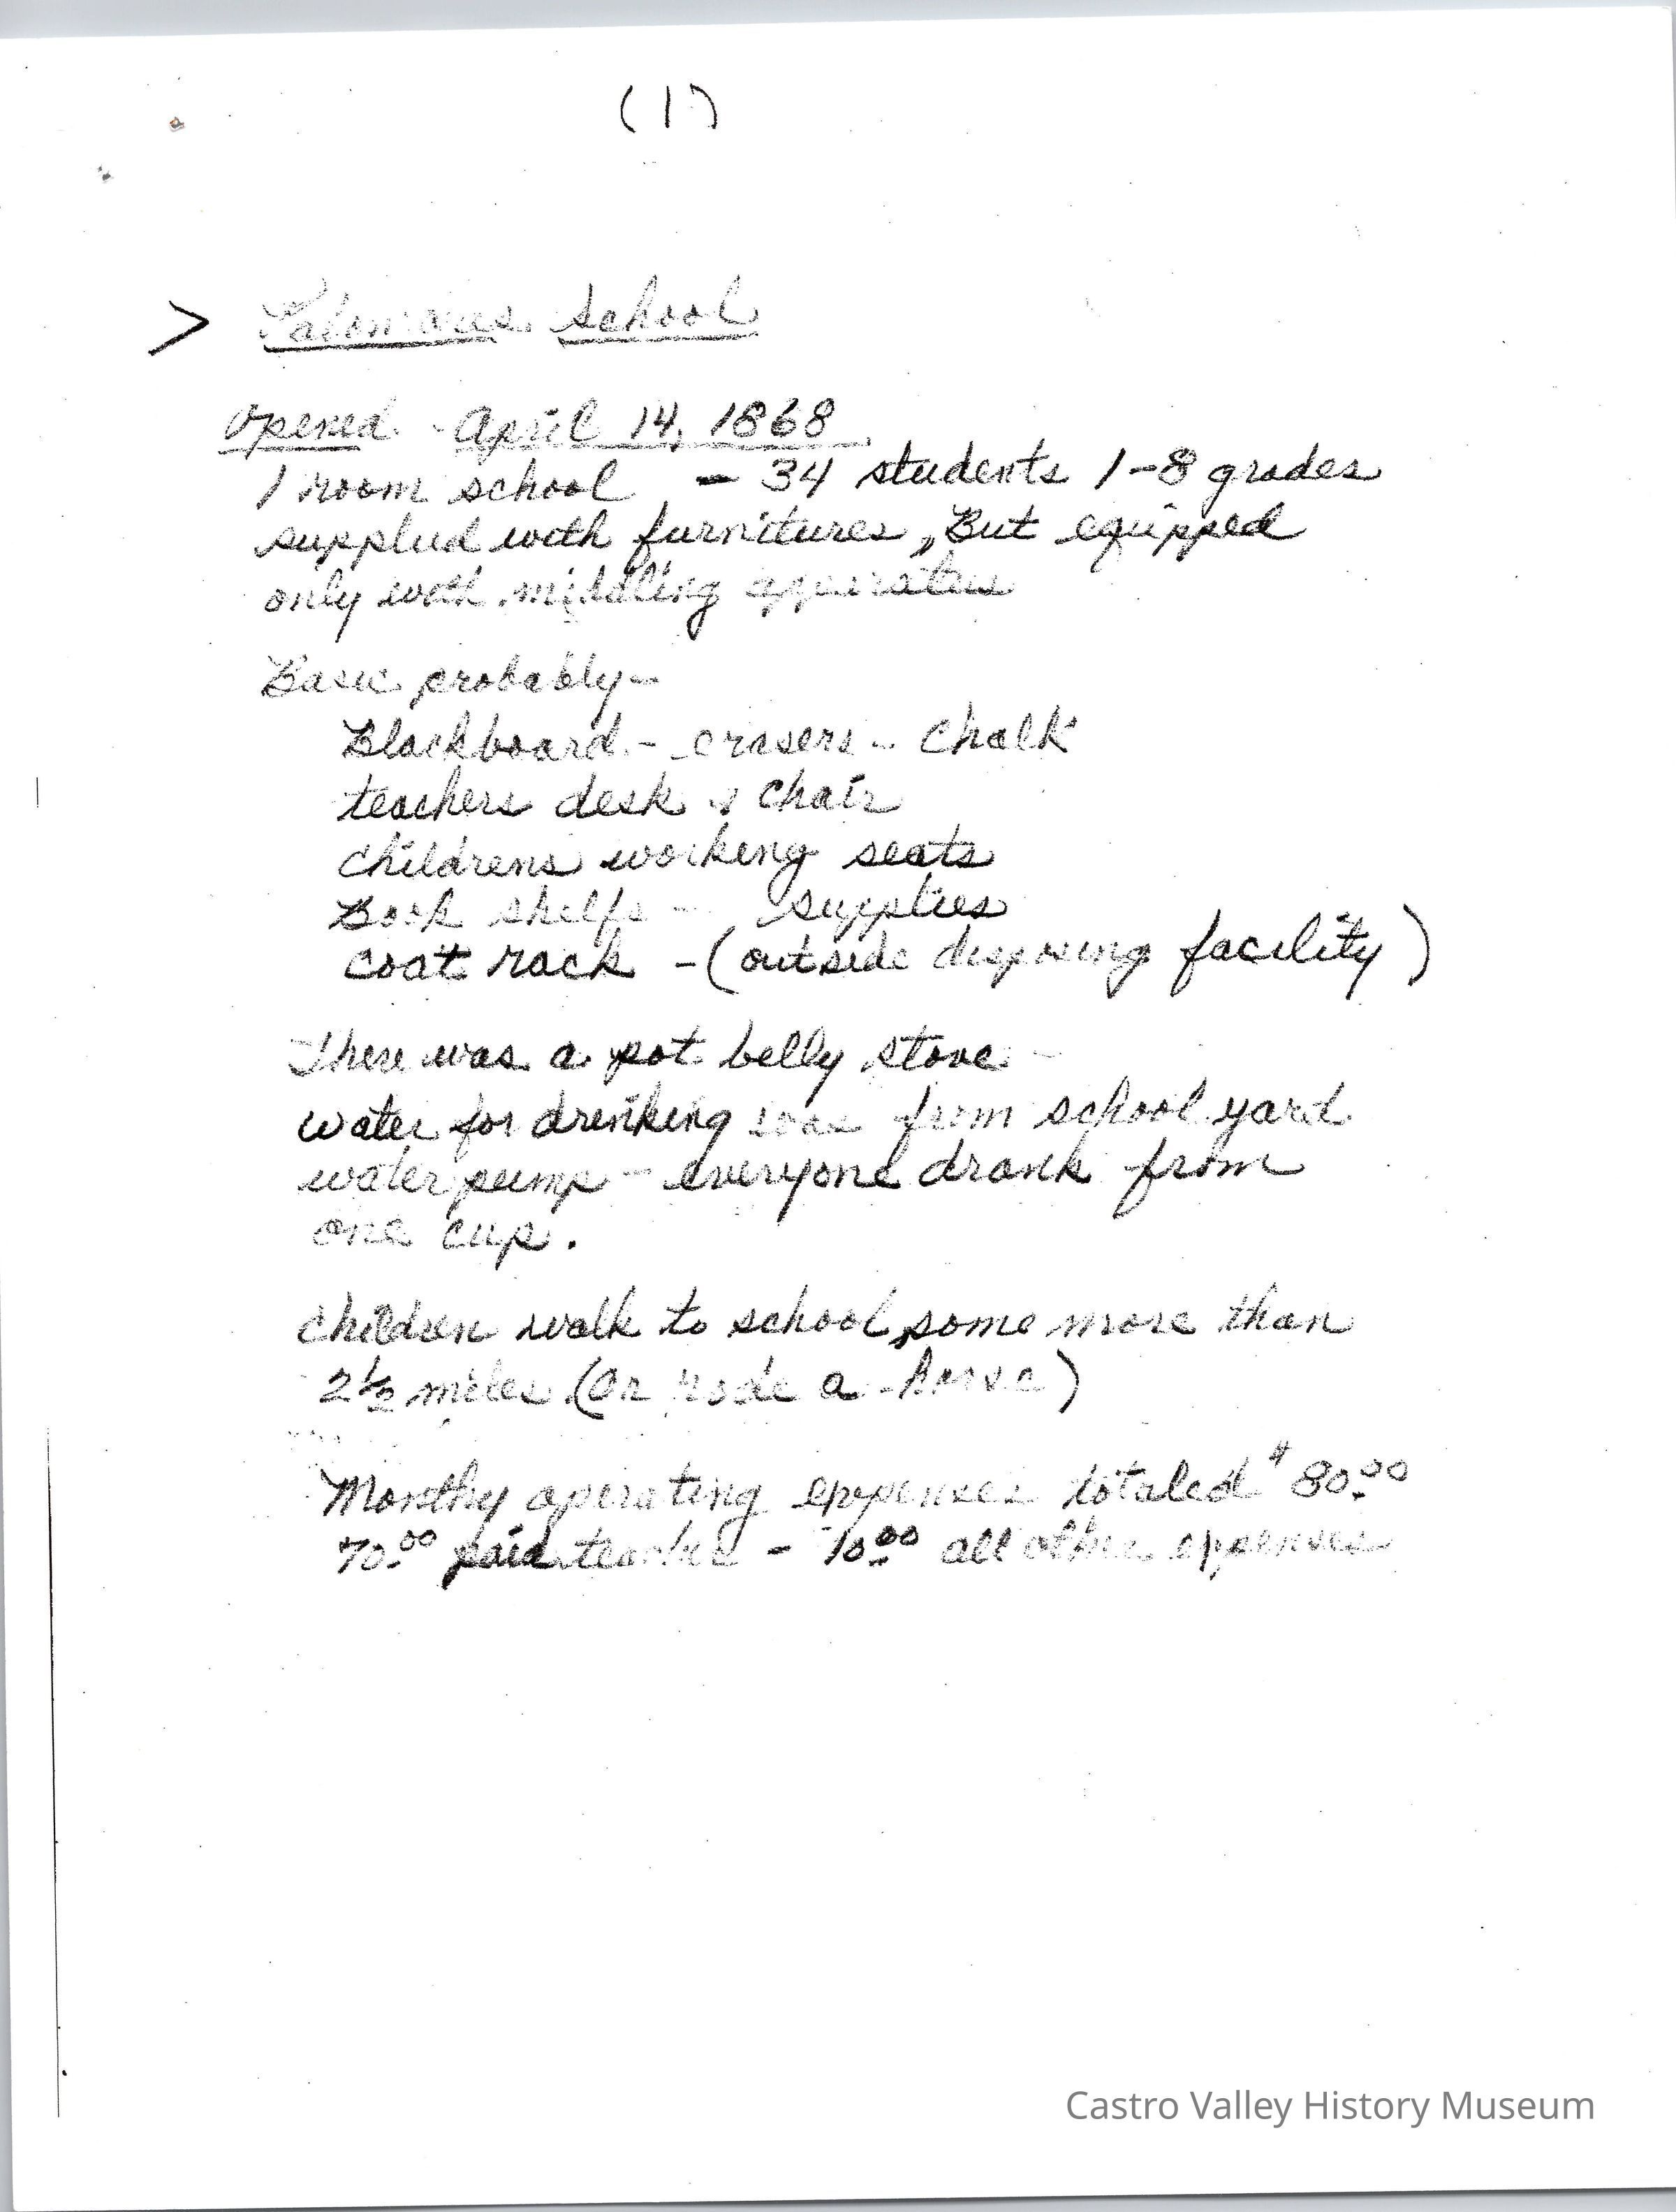 (1)
> Palomares School
Opened - April 14, 1868
1 room school - 34 students 1-8 grades
supplied with furnitures, But equipped
only with middling apparatus
Basic probably -
Blackboard - erasers - chalk
teachers desk & chair
childrens working seats
Book shelfs - supplies
coat rack - (outside disposing facility)
There was a pot belly stove -
water for drinking was from school yard
water pump - everyone drank from
one cup.
children walk to school, some more than
2 1/2 miles (or rode a horse)
Monthy operating expenses totaled $80.00
70.00 paid teacher - 10.00 all other expenses
Castro Valley History Museum